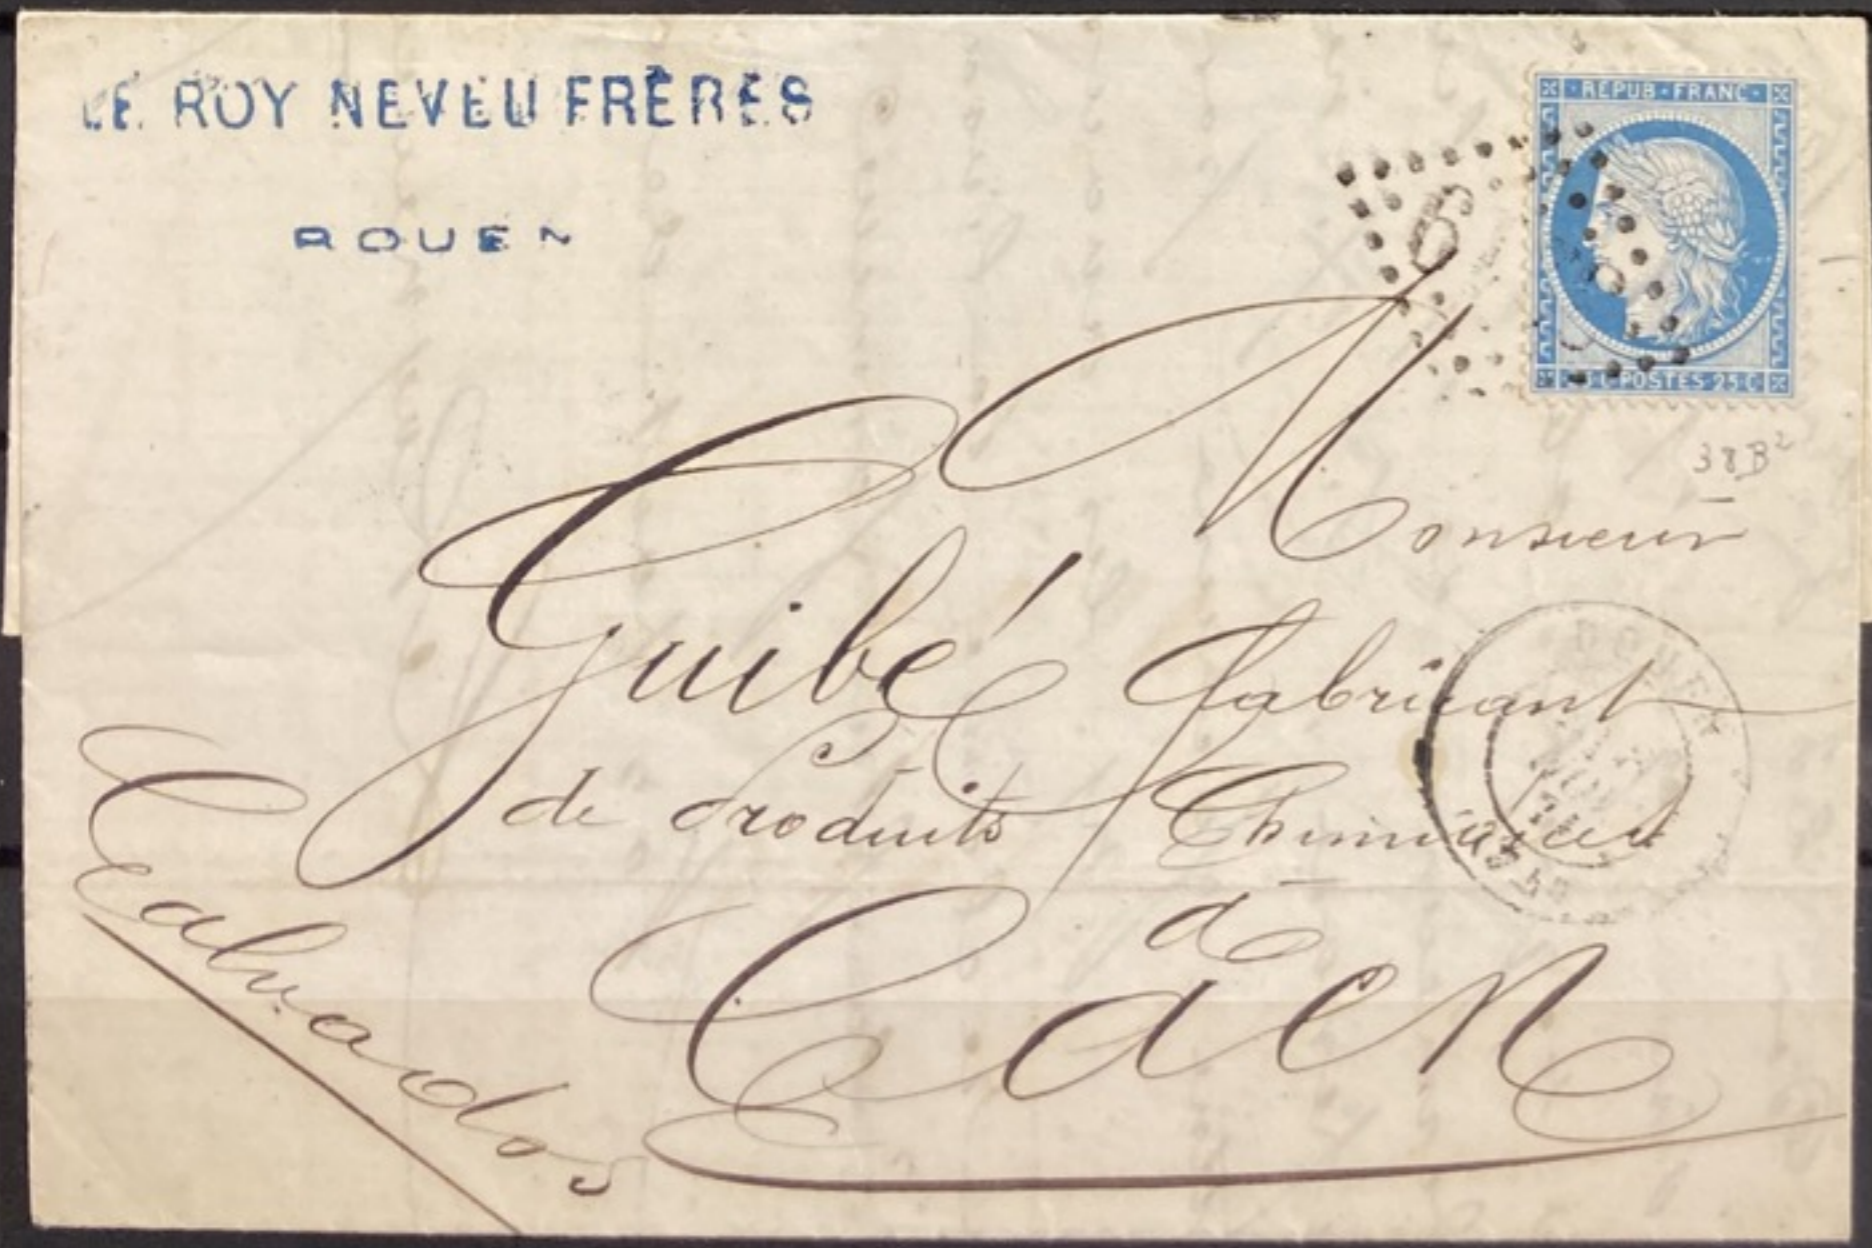 LE ROY NEVEU FRÈRES
ROUEN
REPUB·FRANC·
POSTES·25·C
38B²
Monsieur
Guibé fabricant
de produits Chimiques
à
Caen
Calvados
ROUEN